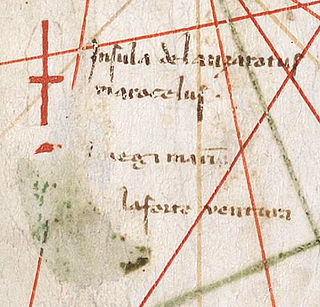 Insula de lanzarotus
marocelus
vegi mari
la forte ventura